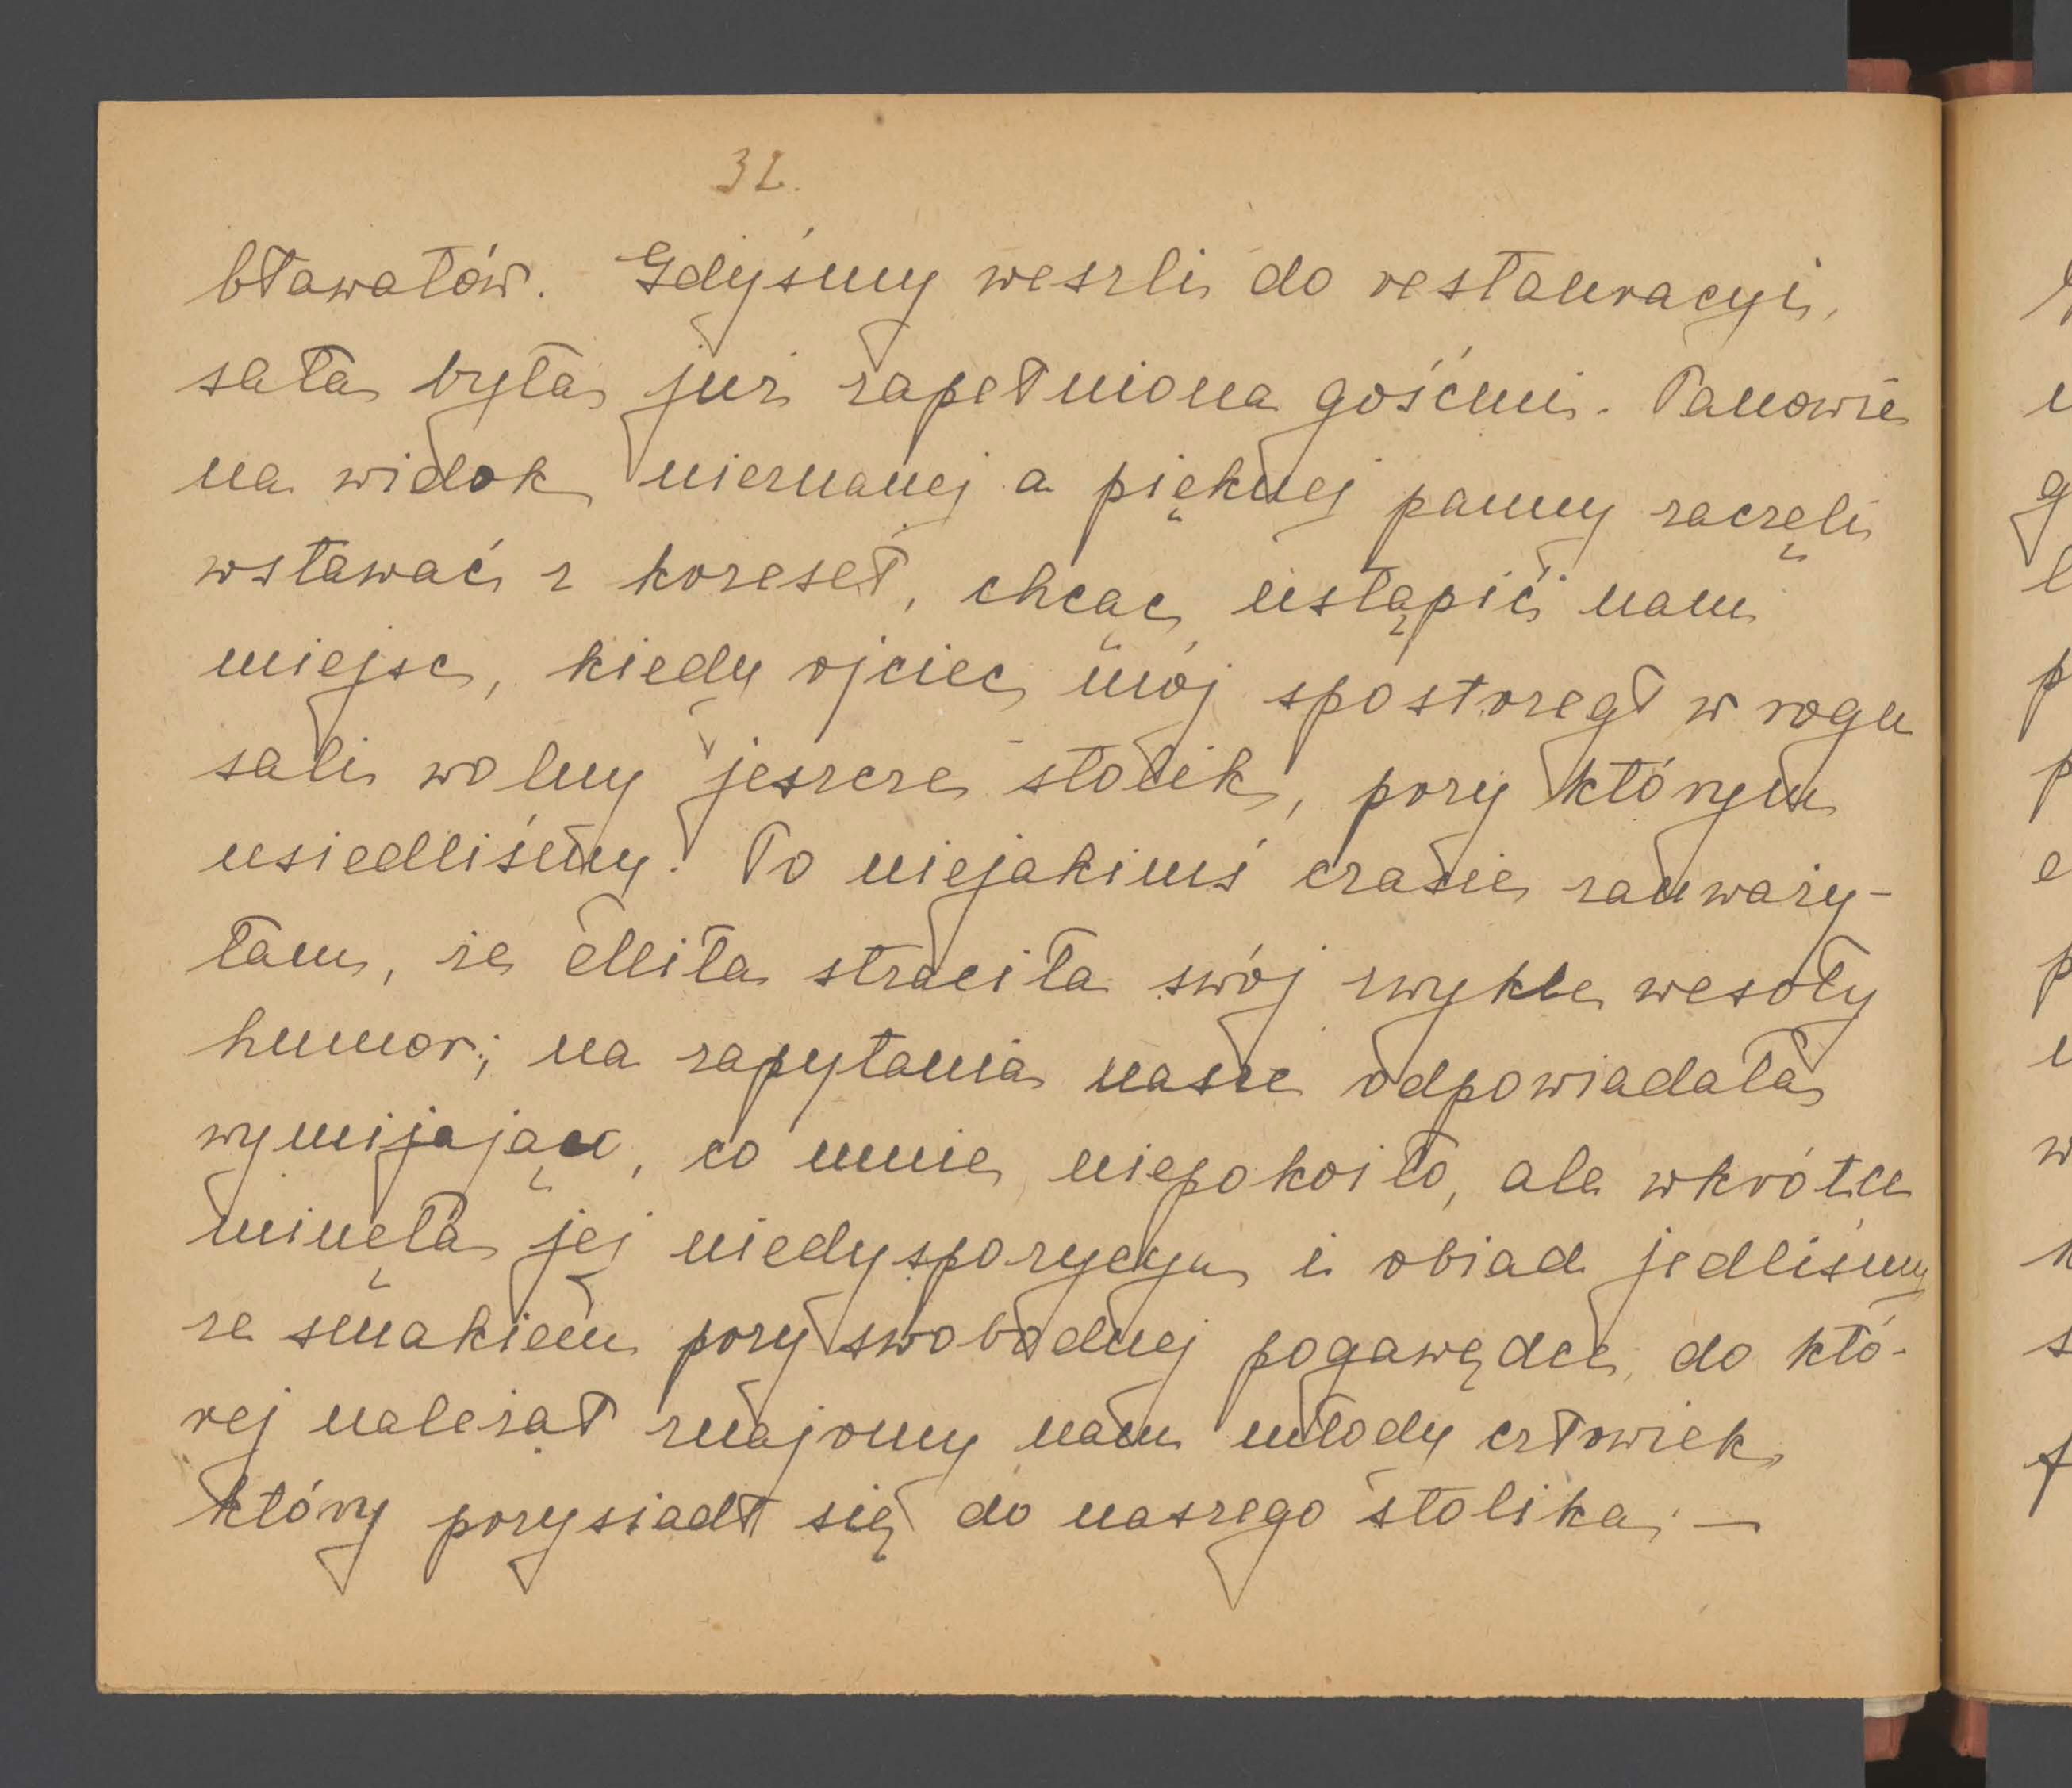 32.
bławatów. Gdyśmy weszli do restauracyi,
sala była już zapełniona gośćmi. Panowie
na widok nieznanej a pięknej panny zaczęli
wstawać z krzeseł, chcąc ustąpić nam
miejsc, kiedy ojciec mój spostrzegł w rogu
sali wolny jeszcze stolik, przy którym
usiedliśmy. Po niejakimś czasie zauważy-
łam, że Milla straciła swój zwykle wesoły
humor; na zapytania nasze odpowiadała
wymijająco, co mnie niepokoiło, ale wkrótce
minęła jej niedyspozycya i obiad jedliśmy
ze smakiem przy swobodnej pogawędce, do któ-
rej należał znajomy nam młody człowiek,
który przysiadł się do naszego stolika. —